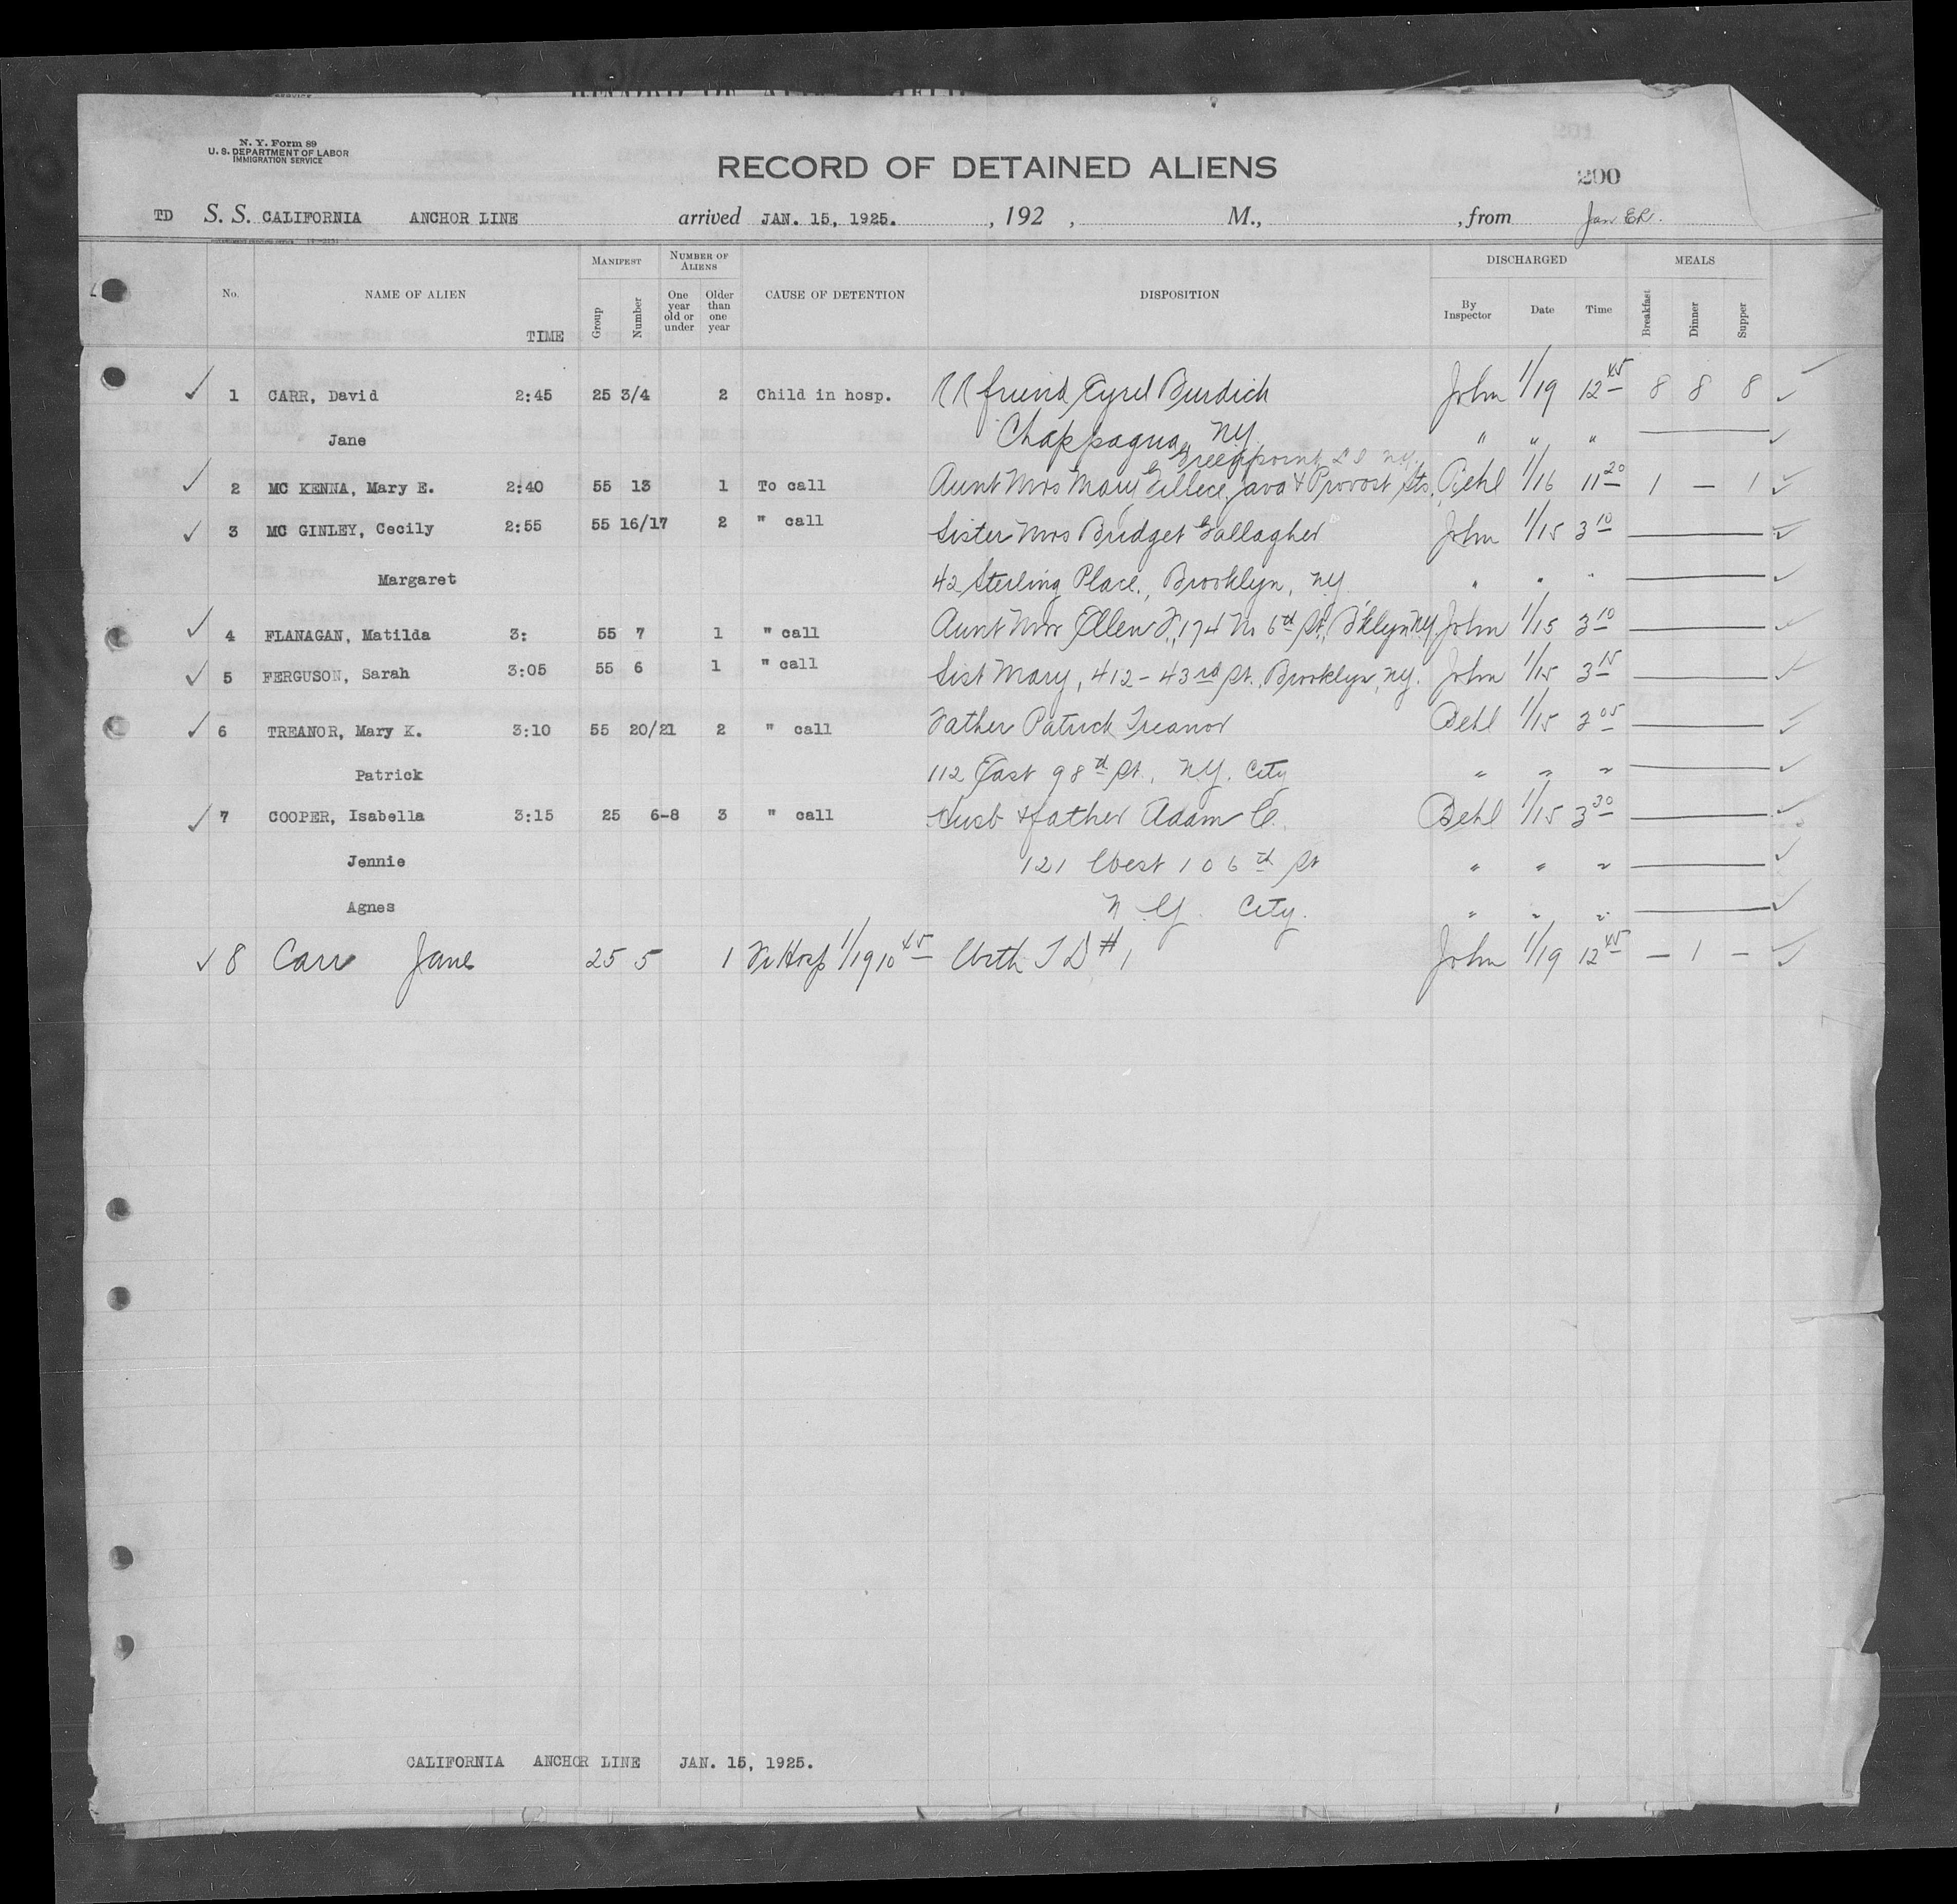 N. Y. Form 89
U. S. DEPARTMENT OF LABOR
IMMIGRATION SERVICE
RECORD OF DETAINED ALIENS
200
TD S. S. CALIFORNIA ANCHOR LINE arrived JAN. 15, 1925. , 192 , M., , from
MANIFEST NUMBER OF ALIENS DISCHARGED MEALS
No. NAME OF ALIEN TIME Group Number One year old or under Older than one year CAUSE OF DETENTION DISPOSITION By Inspector Date Time Breakfast Dinner Supper
✓ 1 CARR, David 2:45 25 3/4 2 Child in hosp. RR friend Cyril Burdick John 1/19 12 45 8 8 8 ✓
Jane Chappaqua, NY. " " " — ✓
Greenpoint L I NY.
✓ 2 MC KENNA, Mary E. 2:40 55 13 1 To call Aunt Mrs Mary Gillece, Java & Provost Sts. Behl 1/16 11 20 1 — 1 ✓
✓ 3 MC GINLEY, Cecily 2:55 55 16/17 2 " call Sister Mrs Bridget Gallagher John 1/15 3 10 — ✓
Margaret 42 Sterling Place., Brooklyn, NY. " " " — ✓
✓ 4 FLANAGAN, Matilda 3: 55 7 1 " call Aunt Mrs Ellen F., 174 N. 6th St., B'klyn NY. John 1/15 3 10 — ✓
✓ 5 FERGUSON, Sarah 3:05 55 6 1 " call Sist Mary, 412 - 43rd St. Brooklyn, NY. John 1/15 3 15 — ✓
✓ 6 TREANOR, Mary K. 3:10 55 20/21 2 " call Father Patrick Treanor Behl 1/15 3 05 — ✓
Patrick 112 East 98th St., N.Y. City " " " — ✓
✓ 7 COOPER, Isabella 3:15 25 6-8 3 " call Husb & father Adam C. Behl 1/15 3 30 — ✓
Jennie 121 West 106th St " " " — ✓
Agnes N. Y. City. " " " — ✓
✓ 8 Carr Jane 25 5 1 Fr Hosp 1/19 10 45 With T D # 1 John 1/19 12 45 — 1 — ✓
CALIFORNIA ANCHOR LINE JAN. 15, 1925.